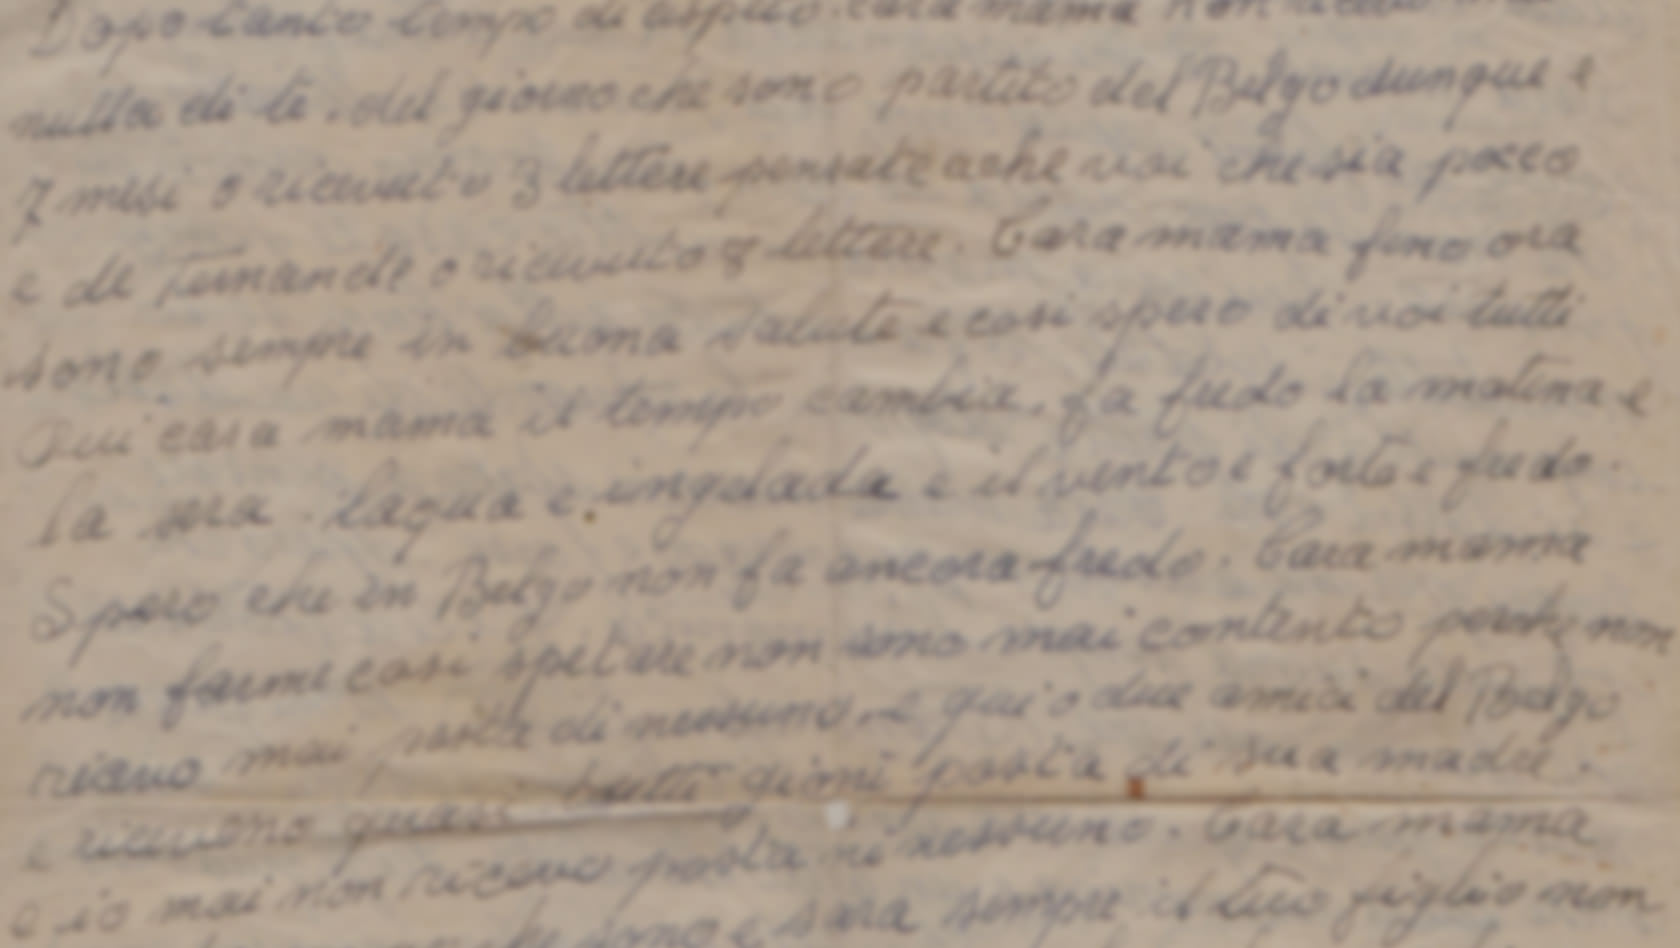 Dopo tanto tempo di aspeto. cara mama non
nulla di te. del giorno che sono partito del Belgo dunque e
7 mesi o ricevuto 3 lettere pensate ache voi che sia pocco
e de o ricevuto 8 lettere. Cara mama fino ora
sono sempre in buona salute e cosi spero di voi tutti
Qui cara mama il tempo cambia. fa fredo la matina e
la sera. laqua e ingelada e il vento e forte e fredo.
Spero che in Belgo non fa ancora fredo. Cara mama
non farme cosi spetare non sono mai contento perche non
ricevo mai posta di nessuno. e qui o due amici del Belgo
e ricevono quasi tutti giorni posta di sua madre.
e io mai non ricevo posta ni nessuno. Cara mama
che sono e sara sempre il tuo figlio non